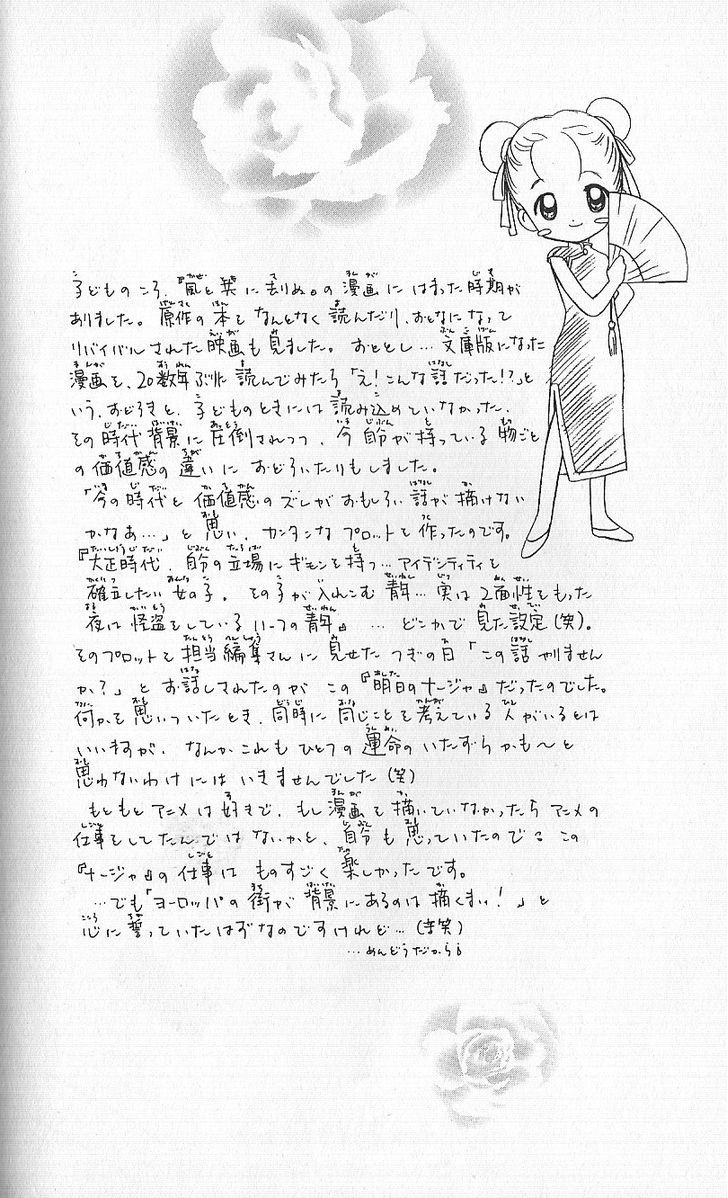 子どものころ、『風と共に去りぬ』の漫画にはまった時期が
ありました。原作の本をなんとなく読んだり、おとなになって
リバイバルされた映画も見ました。おととし…文庫版になった
漫画を、20数年ぶりに読んでみたら「え!こんな話だった!?」と
いう、おどろきと、子どものときには読み込めていなかった、
その時代背景に圧倒されつつ、今自分が持っている物ごと
の価値感の違いにおどろいたりもしました。
「今の時代と価値感のズレがおもしろい話が描けない
かなあ…」と思い、カンタンなプロットを作ったのです。
『大正時代、自分の立場にギモンを持つ…アイデンティティを
確立したい女の子。その子が入れこむ青年…実は2面性をもった
夜は怪盗をしているいっつの青年』…どこかで見た設定(笑)。
そのプロットを担当編集さんに見せたつぎの日「この話やりません
か?」とお話しされたのがこの『明日のナージャ』だったのでした。
何かを思いついたとき、同時に同じことを考えている人がいるとは
いいますが、なんかこれもひとつの運命のいたずらかも〜と
思わないわけにはいきませんでした(笑)
もともとアニメは好きで、もし漫画を描いていなかったらアニメの
仕事をしてたんではないかと、自分も思っていたので、この
『ナージャ』の仕事はものすごく楽しかったです。
…でも「ヨーロッパの街が背景にあるのは描くまい!」と
心に誓っていたはずなのですけれど…(笑)
…めんどうだから